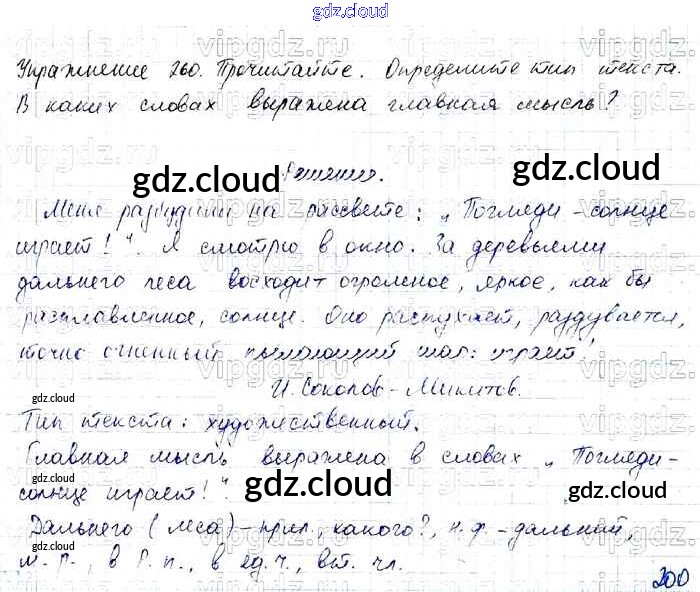 gdz.cloud
Упражнение 260. Прочитайте. Определите тип текста.
В каких словах выражена главная мысль?
Решение.
Меня разбудили на рассвете: „Погляди - солнце
играет!". Я смотрю в окно. За деревьями
дальнего леса восходит огромное, яркое, как бы
расплавленное, солнце. Оно распухает, раздувается,
точно огненный пылающий шар: играет!
И. Соколов-Микитов.
Тип текста: художественный.
Главная мысль выражена в словах „Погляди-
солнце играет!".
Дальнего (леса) - прил., какого?, н.ф. - дальний,
м.р., в Р.п., в ед.ч., вт. чл.
200